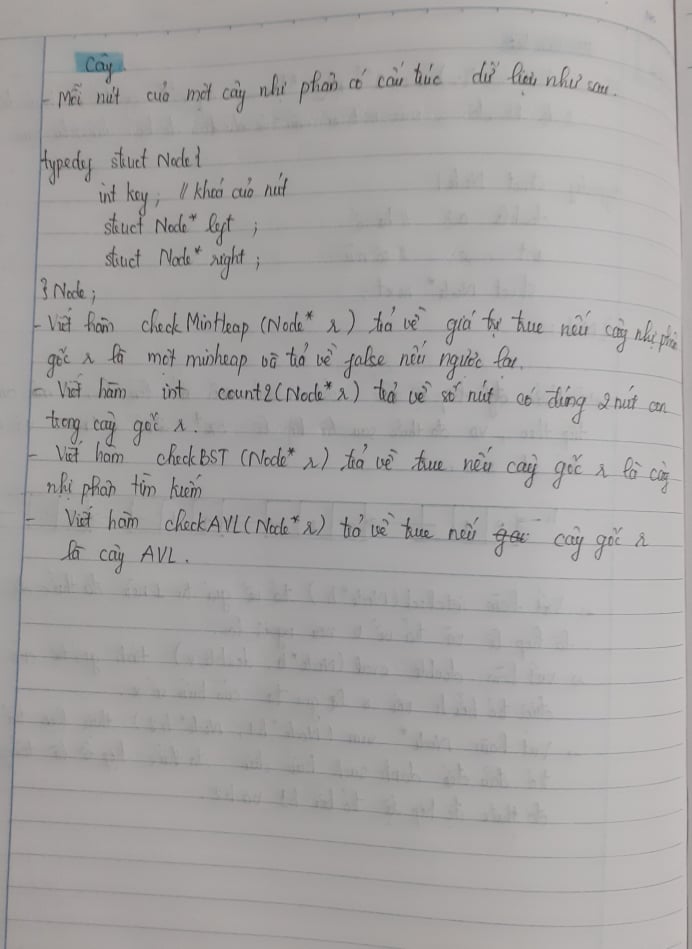 Cây.
- Mỗi nút của một cây nhị phân có cấu trúc dữ liệu như sau.
typedef struct Node {
int key; // khoá của nút
struct Node* left ;
struct Node* right ;
} Node ;
- Viết hàm checkMinHeap (Node* r) trả về giá trị true nếu cây nhị phân
gốc r là một minheap và trả về false nếu ngược lại.
- Viết hàm int count2(Node* r) trả về số nút có đúng 2 nút con
trong cây gốc r.
- Viết hàm checkBST (Node* r) trả về true nếu cây gốc r là cây
nhị phân tìm kiếm
- Viết hàm checkAVL(Node* r) trả về true nếu cây gốc r
là cây AVL.